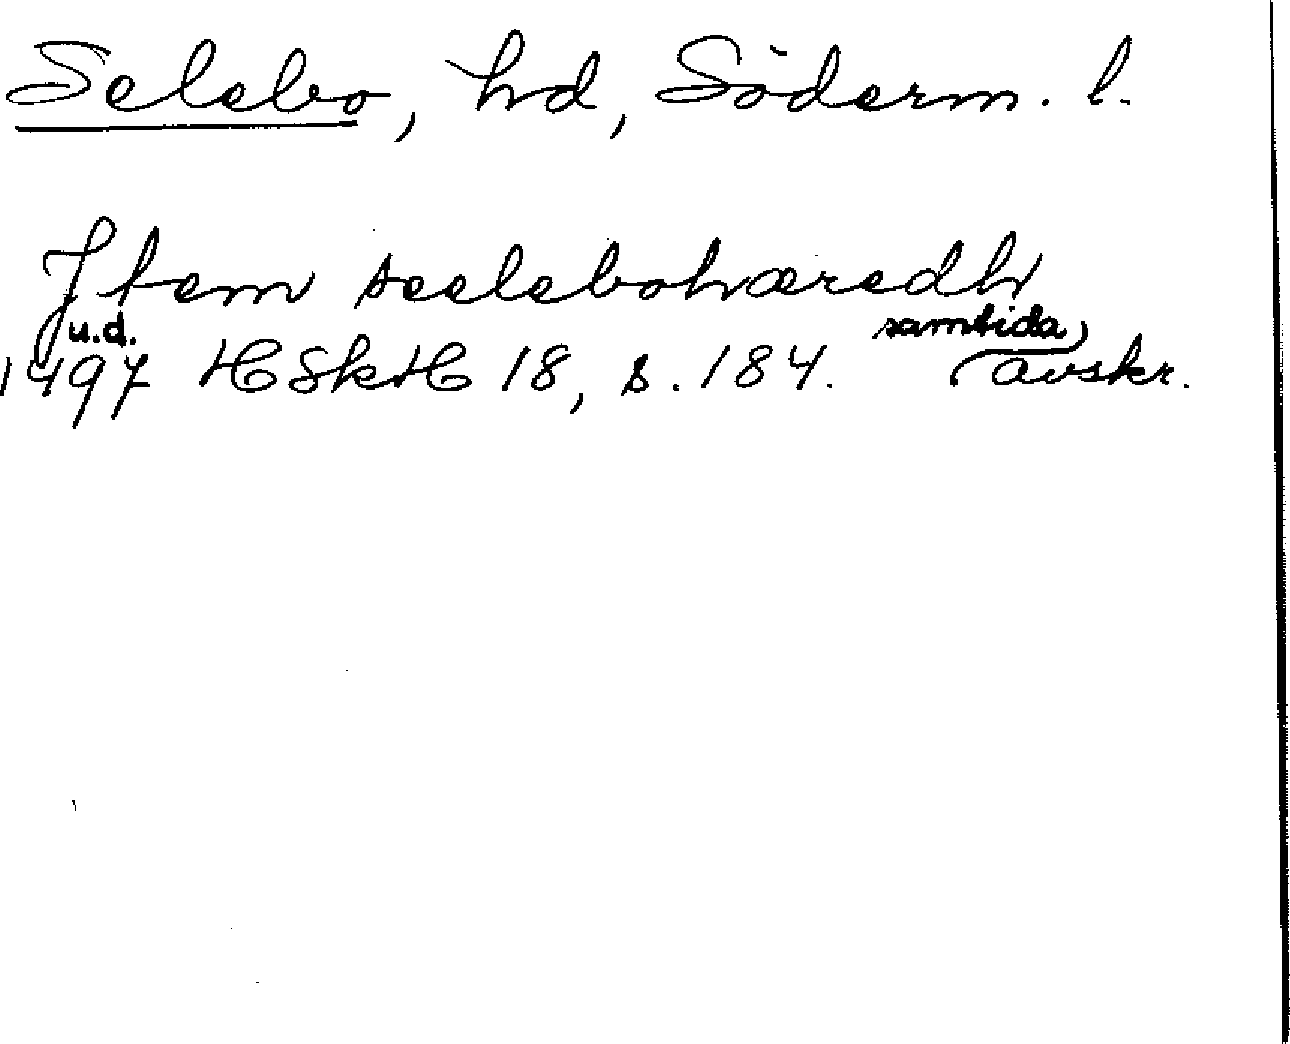 Selebo, hd, Söderm. l.
Jtem seelebohæredh
u.d. samtida
1497 HSkH 18, s. 184. avskr.